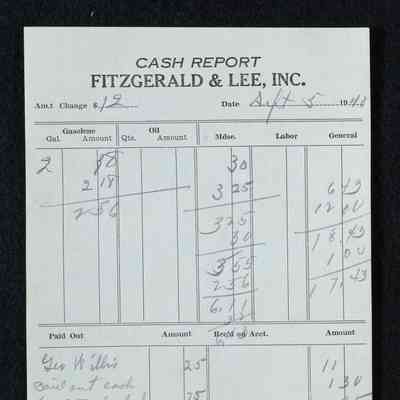 CASH REPORT
FITZGERALD & LEE, INC.
Am.t Change $ 12 Date Sept 5 1940
Gasolene Oil Mdse. Labor General
Gal. Amount Qts. Amount
2 18 30
2 18 3 25 6 43
2 56 325 12 00
30 18,43
3 55 1 00
2 56 17,43
6,11
Paid Out Amount Rec'd on Acct. Amount
Geo Willis 25 11
Paid out cash 1 30
75